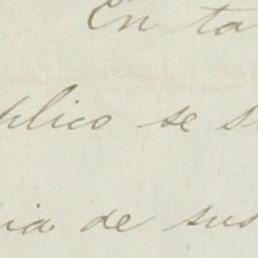 En ta
plico se s
ia de sus